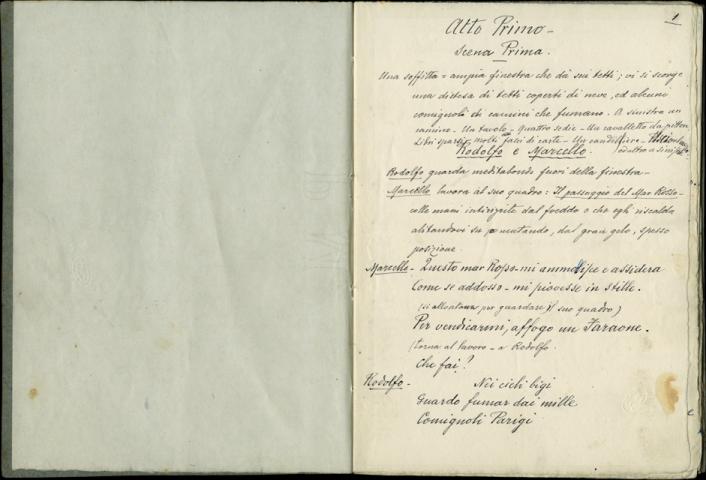 1
Atto Primo -
Scena Prima.
Una soffitta = ampia finestra che dà sui tetti; vi si scorge
una distesa di tetti coperti di neve, ed alcuni
comignoli di camini che fumano. A sinistra un
camino - Un tavolo - Quattro sedie - Un cavalletto da pittore
Libri sparsi, molti fasci di carte - Un candeliere -
Rodolfo e Marcello.
Rodolfo guarda meditabondo fuori della finestra -
Marcello lavora al suo quadro: Il passaggio del Mar Rosso -
colle mani intirizzite dal freddo e che egli riscalda
alitandovi su mutando, dal gran gelo, spesso
posizione.
Marcello - Questo mar Rosso - mi ammollisce e assidera
Come se addosso - mi piovesse in stille.
(si allontana per guardare il suo quadro)
Per vendicarmi, affogo un Faraone.
(torna al lavoro - a Rodolfo.
Che fai?
Rodolfo - Nei cieli bigi
Guardo fumar dai mille
Comignoli Parigi